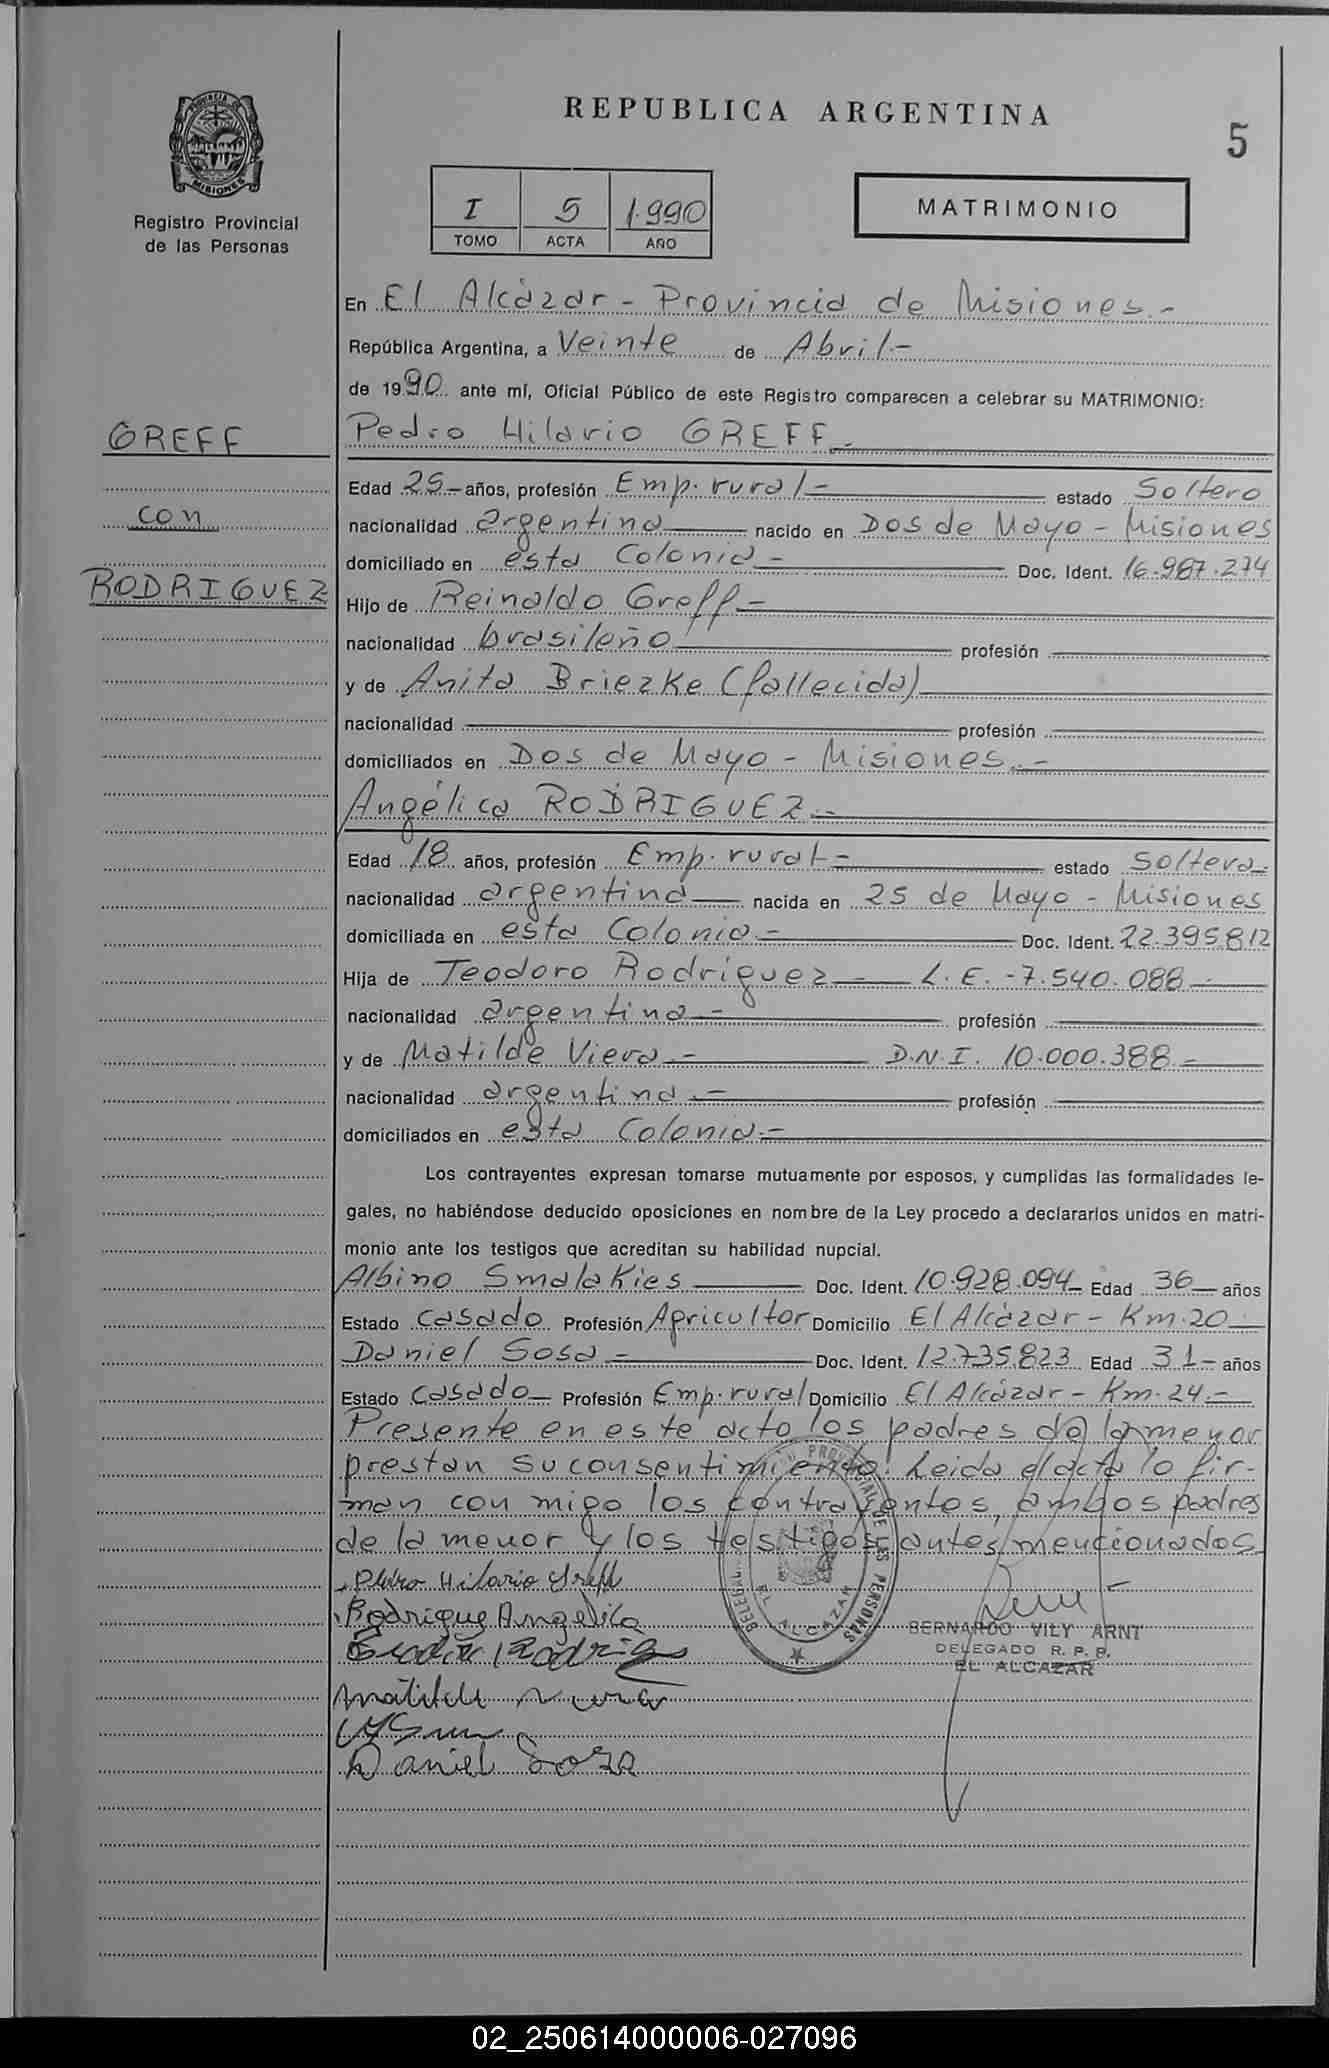 REPUBLICA ARGENTINA
5
PROVINCIA DE MISIONES
Registro Provincial
de las Personas
I 5 1.990
TOMO ACTA AÑO
MATRIMONIO
En El Alcázar - Provincia de Misiones.-
República Argentina, a Veinte de Abril.-
de 1990 ante mí, Oficial Público de este Registro comparecen a celebrar su MATRIMONIO:
GREFF
con
RODRIGUEZ
Pedro Hilario GREFF.-
Edad 25- años, profesión Emp. rural- estado Soltero
nacionalidad argentina nacido en Dos de Mayo - Misiones
domiciliado en esta Colonia.- Doc. Ident. 16.987.274
Hijo de Reinaldo Greff.-
nacionalidad brasileño profesión
y de Anita Briezke (fallecida)
nacionalidad profesión
domiciliados en Dos de Mayo - Misiones.-
Angélica RODRIGUEZ.-
Edad 18 años, profesión Emp. rural- estado soltera-
nacionalidad argentina nacida en 25 de Mayo - Misiones
domiciliada en esta Colonia.- Doc. Ident. 22.395.812
Hija de Teodoro Rodriguez L.E. -7.540.088.-
nacionalidad argentina.- profesión
y de Matilde Viera.- D.N.I. 10.000.388.-
nacionalidad argentina.- profesión
domiciliados en esta Colonia.-
Los contrayentes expresan tomarse mutuamente por esposos, y cumplidas las formalidades le-
gales, no habiéndose deducido oposiciones en nombre de la Ley procedo a declararlos unidos en matri-
monio ante los testigos que acreditan su habilidad nupcial.
Albino Smalakies Doc. Ident. 10.928.094- Edad 36 años
Estado Casado Profesión Agricultor Domicilio El Alcázar - Km. 20
Daniel Sosa - Doc. Ident. 12.735.823 Edad 31- años
Estado Casado Profesión Emp. rural Domicilio El Alcázar - Km. 24.-
Presente en este acto los padres de la menor
prestan su consentimiento. Leida el acta lo fir-
man con migo los contrayentes, ambos padres
de la menor y los testigos antes mencionados.
Pedro Hilario Greff
Rodrigue Angelica
Matilde Viera
Daniel Sosa
DELEG. REGISTRO PROVINCIAL DE LAS PERSONAS
EL ALCAZAR
BERNARDO VILY ARNT
DELEGADO R. P. P.
EL ALCAZAR
02_250614000006-027096